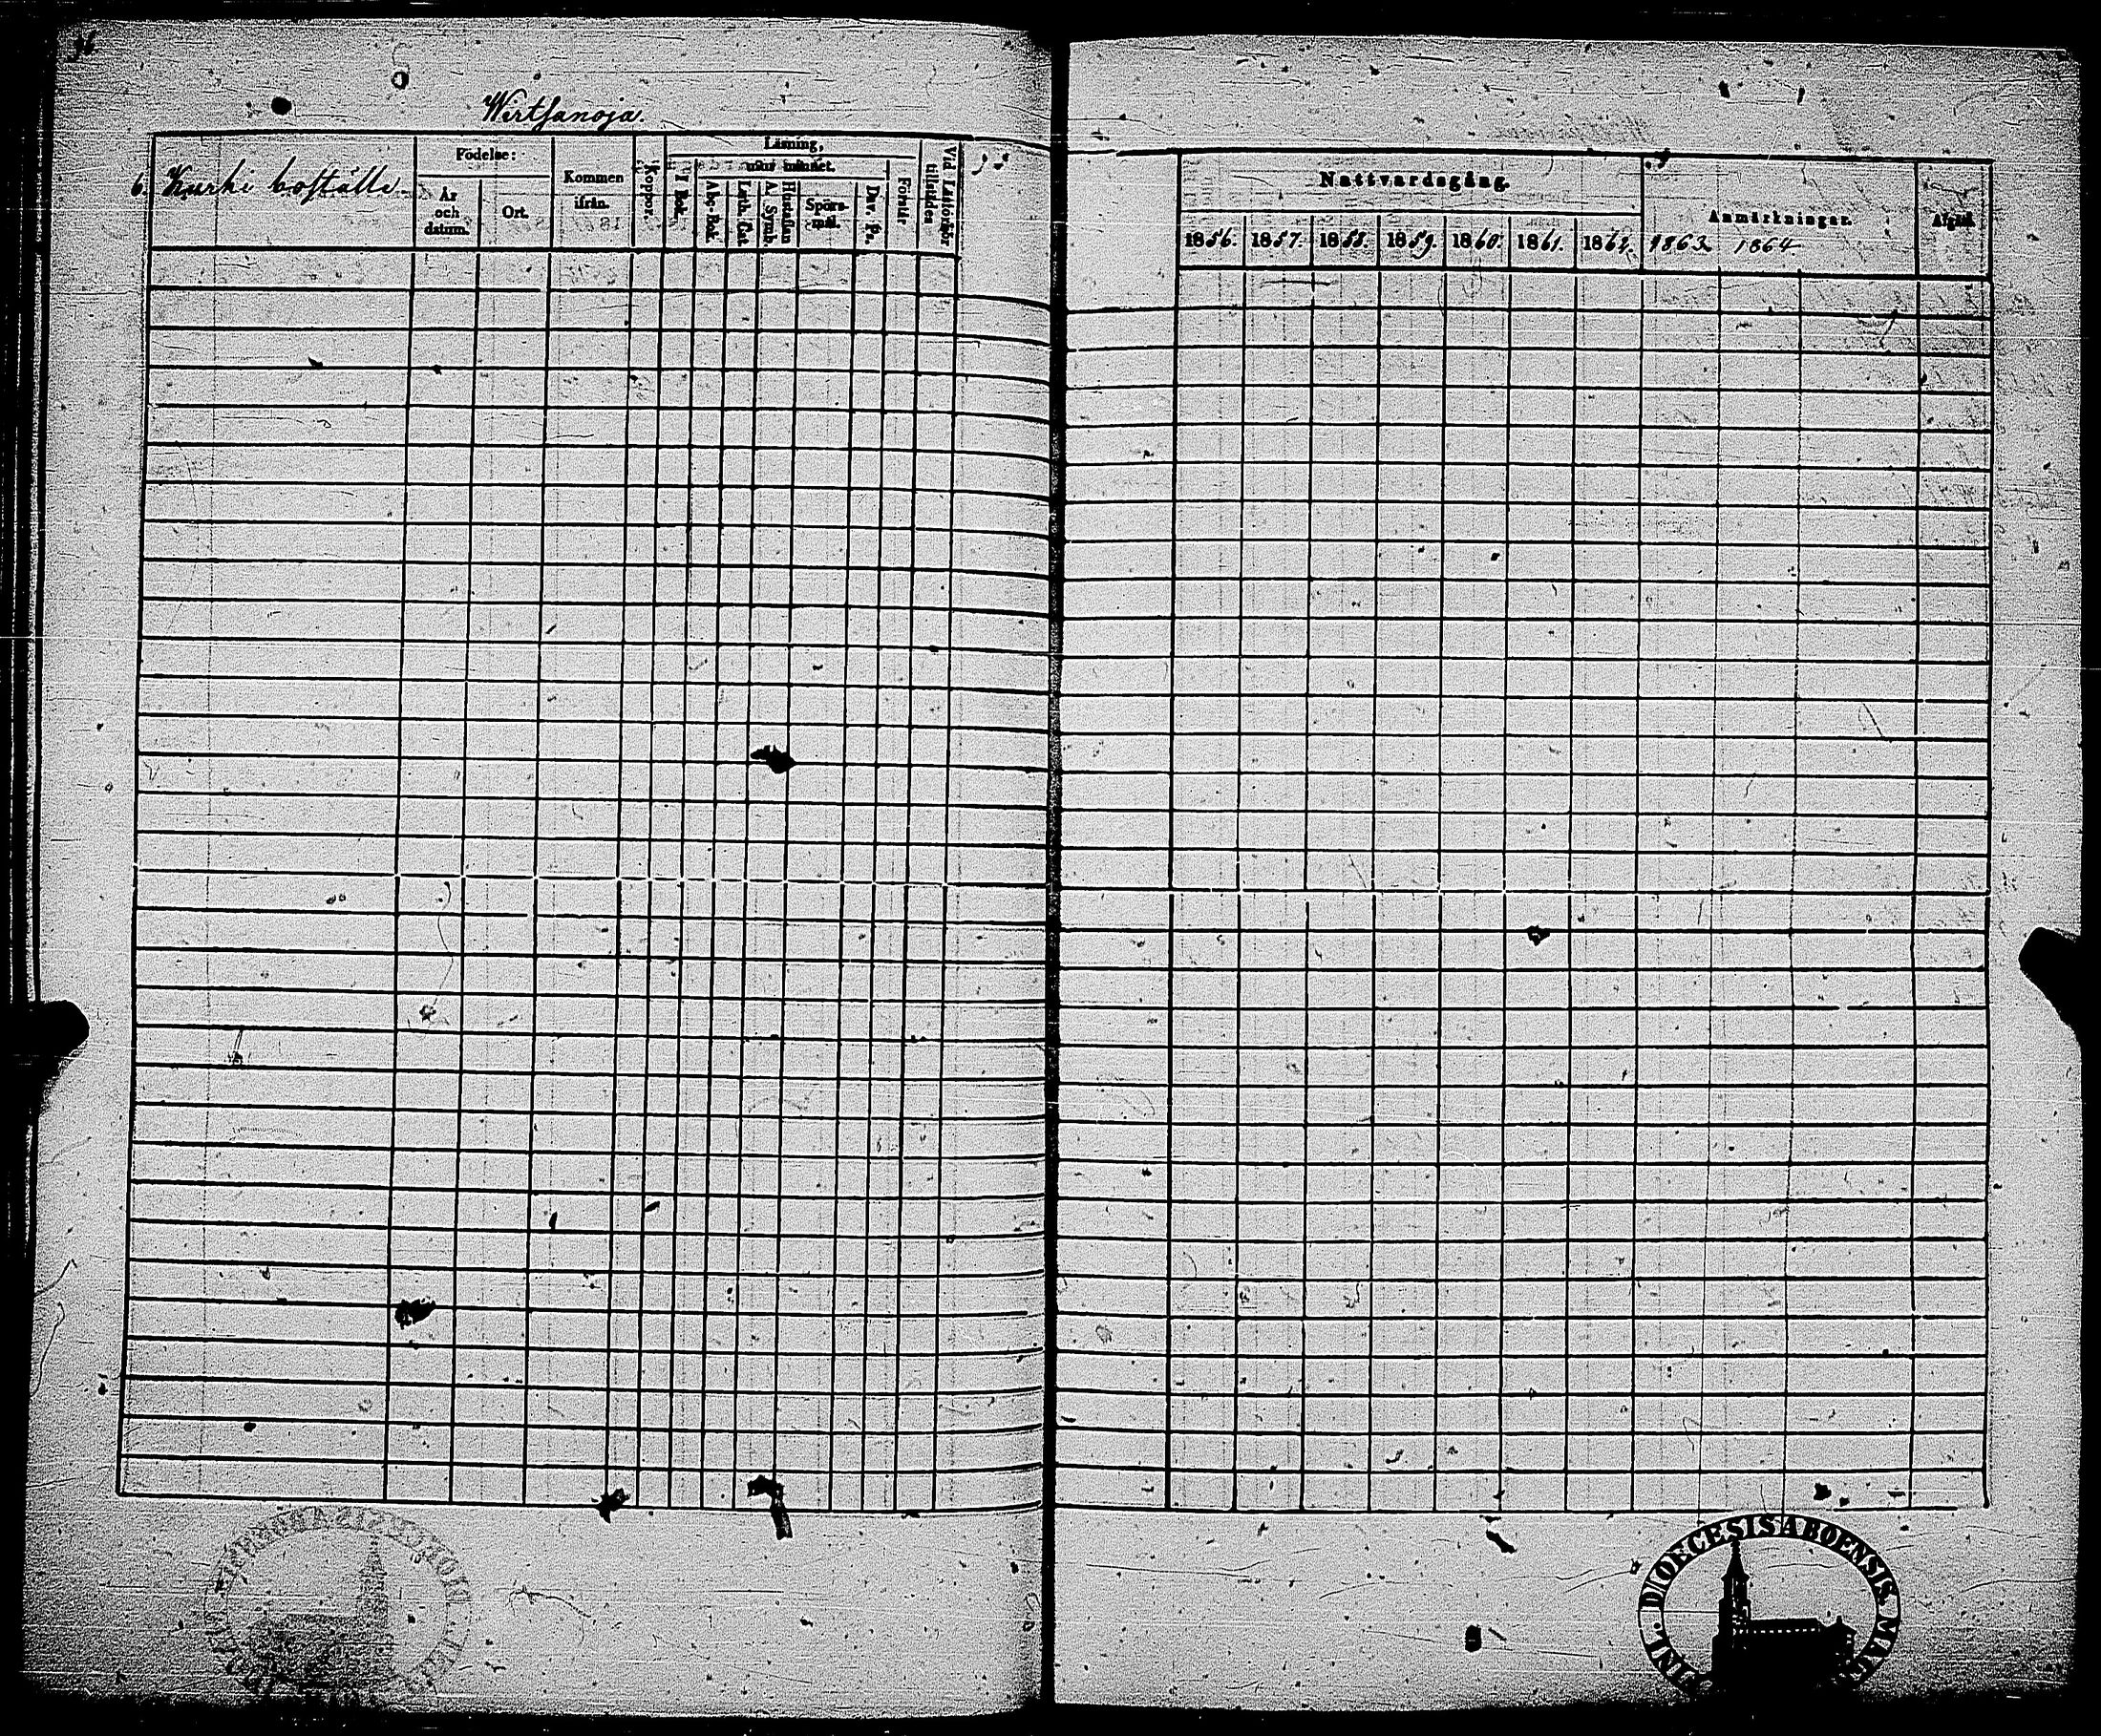 36
Wirtsanoja.
6. Kurki boställe
Födelse:
År och datum.
Ort.
Kommen ifrån.
Koppor.
Läsning,
I Bok.
utur minnet.
Abc-Bok
Luth. Cat.
Hustaflan A. Symb.
Spörs-mål.
Dav. Ps.
Förstår
Vid Läsförhör tillstädes
Nattvardsgång.
1856. 1857. 1858. 1859. 1860. 1861. 1862. 1863 1864
Anmärkningar.
Afgått.
FINL. DIOECESIS ABOENSIS. MAG